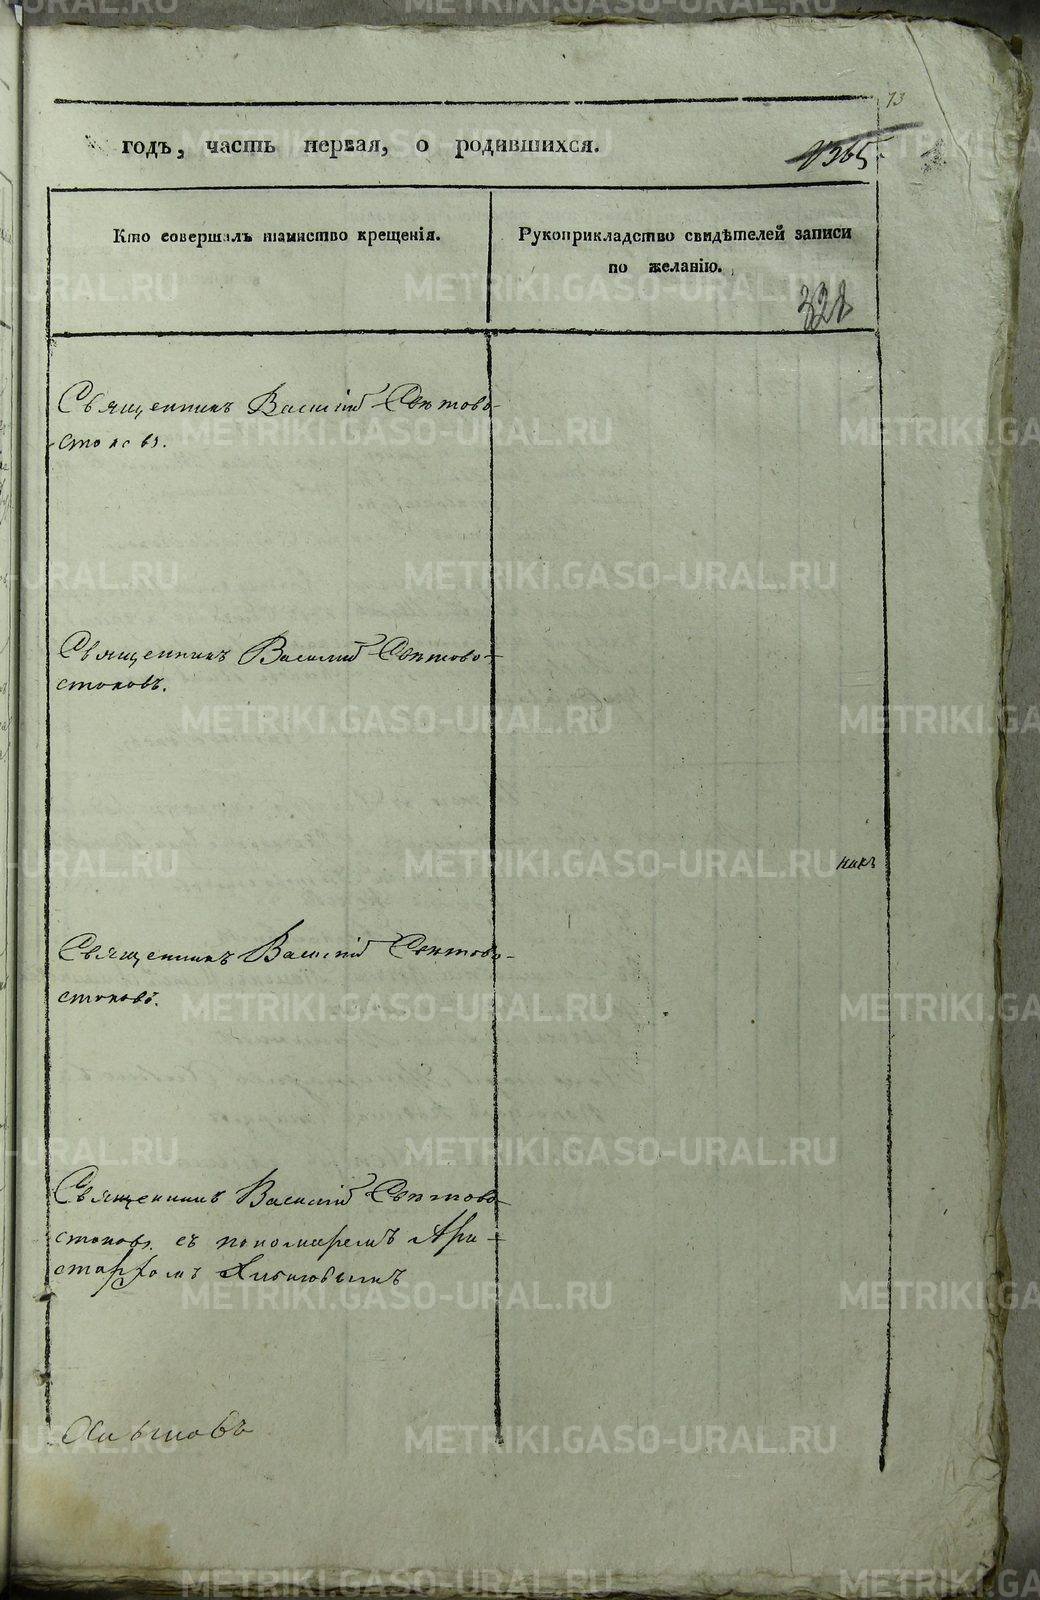 73
годъ, часть первая, о родившихся.
1365
Кто совершалъ таинство крещенія.
Рукоприкладство свидѣтелей записи
по желанію.
328
Священникъ Василій Свѣтово-
стоковъ.
Священникъ Василій Свѣтово-
стоковъ.
никъ
Священникъ Василій Свѣтово-
стоковъ.
Священникъ Василій Свѣтово-
стоковъ. съ пономаремъ Ари-
стархомъ
METRIKI.GASO-URAL.RU